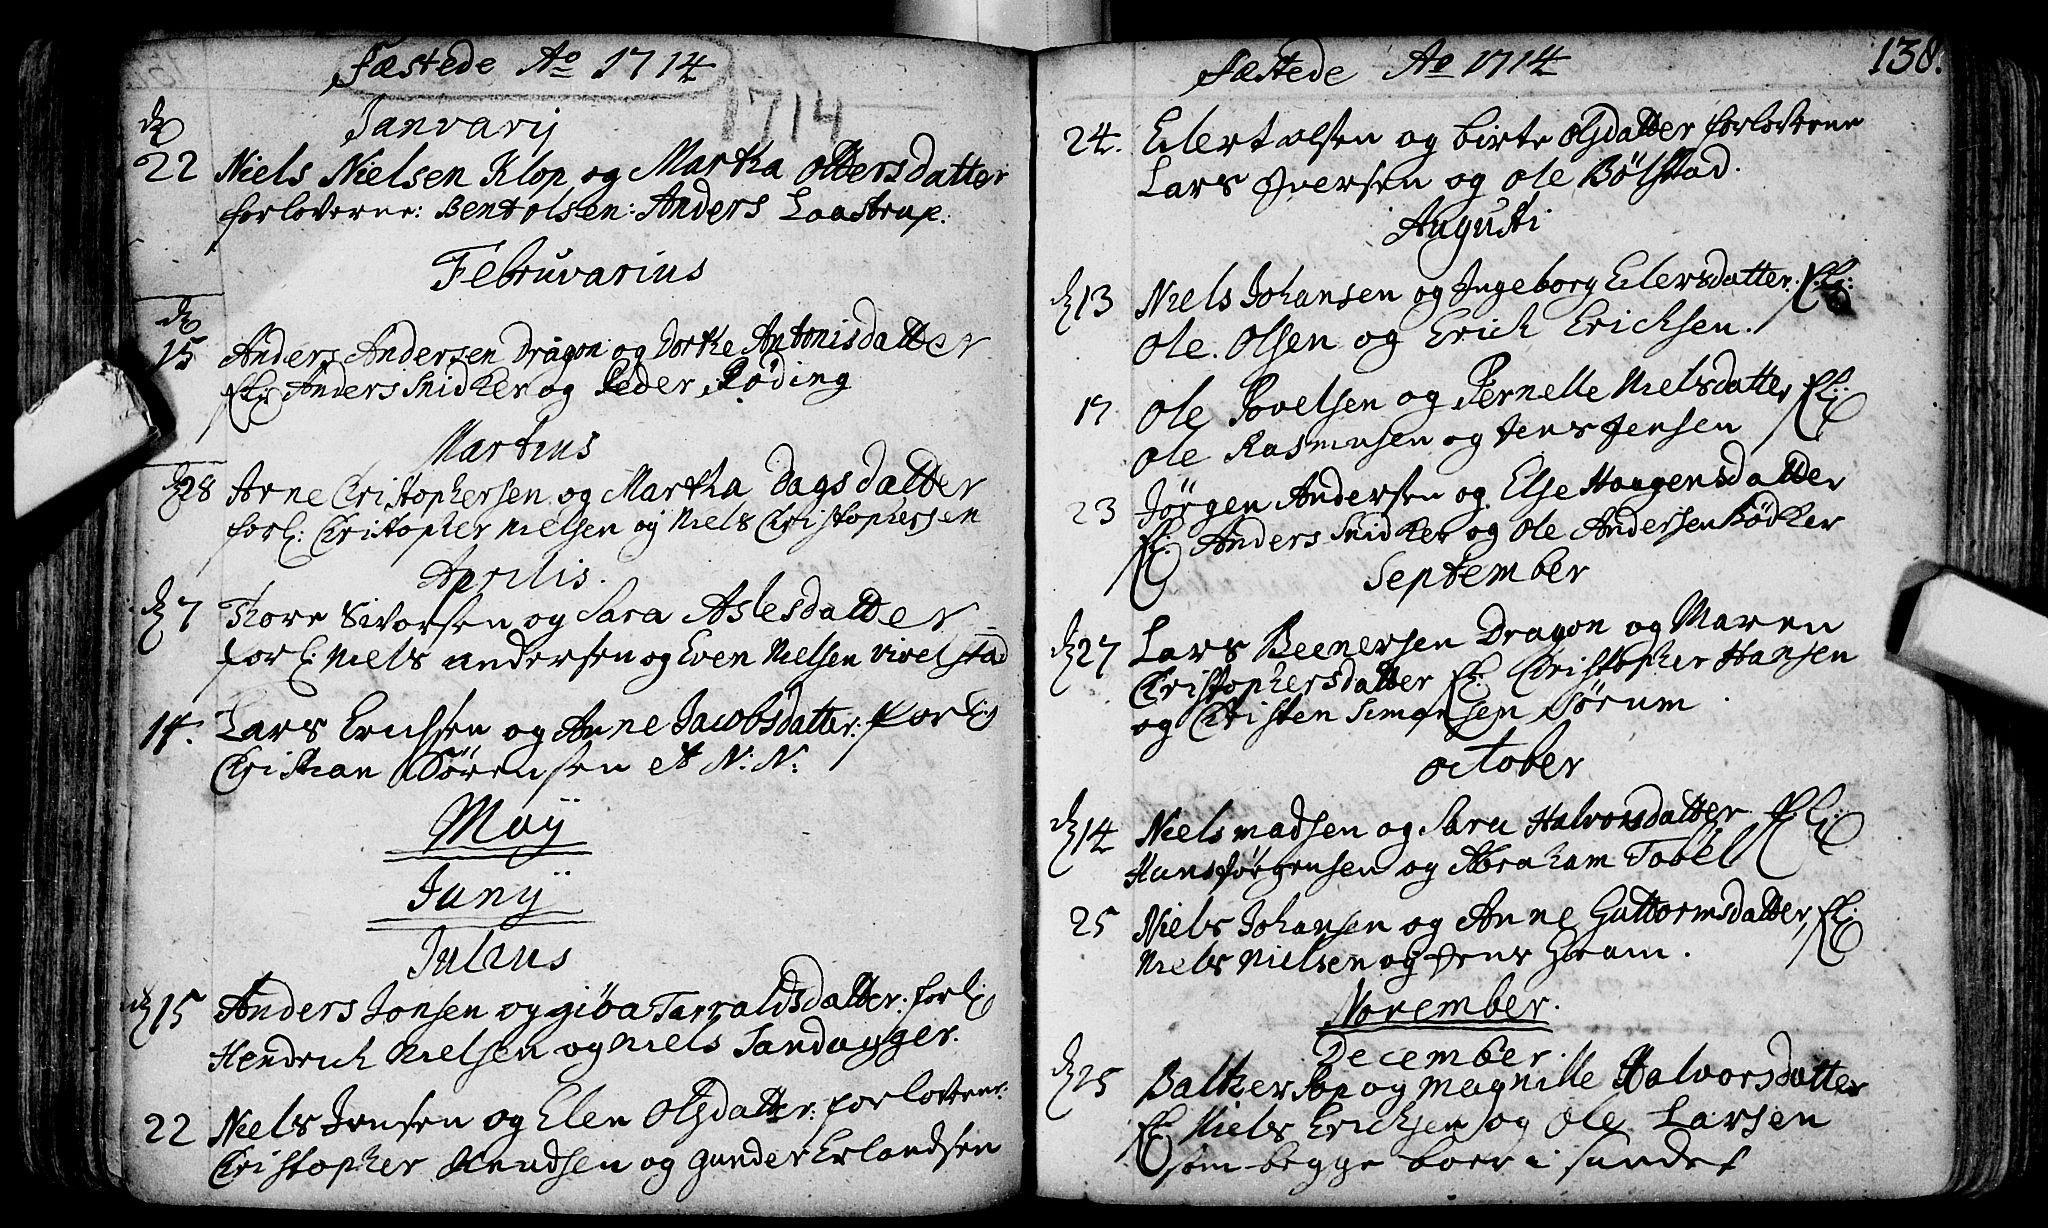 Fæstede Ao 1714
1714
Janvarij
d
22 Niels Nielsen Klop og Martha Ottersdatter
forloverne: Bent olsen: Anders Laastrup.
Februvarius
d
15 Anders Andersen Dragon og Dorthe Antonisdatter
Fl: Anders Snidker og Peder Røding
Martius
d 28 Arne Christophersen og Martha Dagsdatter
forl: Christopher Nielsen og Niels Christophersen
Aprilis.
d 7 Thore Sivorsen og Sara Aslesdatter
forl: Niels andersen og Even Nielsen vivelstad
14. Lars Erichsen og Anne Jacobsdatter: forl:
Christian Sørensen et N: N:
Maij
Junij
Julius
d 15 Anders Jonsen og giøa Tarraldsdatter: forl:
Hendrich Nielsen og Niels Sandagger.
22 Niels Jensen og Elen Olsdatter: forloverne:
Christopher Knudsen og gunder Erlandsen
Fæstede Ao 1714
138.
24. Eilert olsen og birte olsdatter forloverne
Lars Iversen og ole Bølstad.
Augusti
d 13 Niels Johansen og Ingeborg Eilersdatter. Fl:
Ole. Olsen og Erich Ericksen.
17 Ole Povelsen og Pernelle Nielsdatter Fl:
ole Rasmusen og Jens Jensen
23 Jørgen Andersen og Else Haagensdatter
Fl: Anders Snidker og ole Andersen Bødker
September
d 27 Lars Beenersen Dragon og Maren
Christophersdatter Fl: Christopher Hansen
og Christen Simonsen Sørum.
October
d 14 Niels madsen og Sara Halvorsdatter Fl:
Hans Jørgensen og Abraham Tobel
25 Niels Johansen og Anne Guttormsdatter, Fl:
Niels Nielsen og Jens Gram.
November.
December.
d 25 Baltzer Sop og Magnille Halvorsdatter
Fl: Niels Ericksen og Ole Larsen
som begge boer i sundet